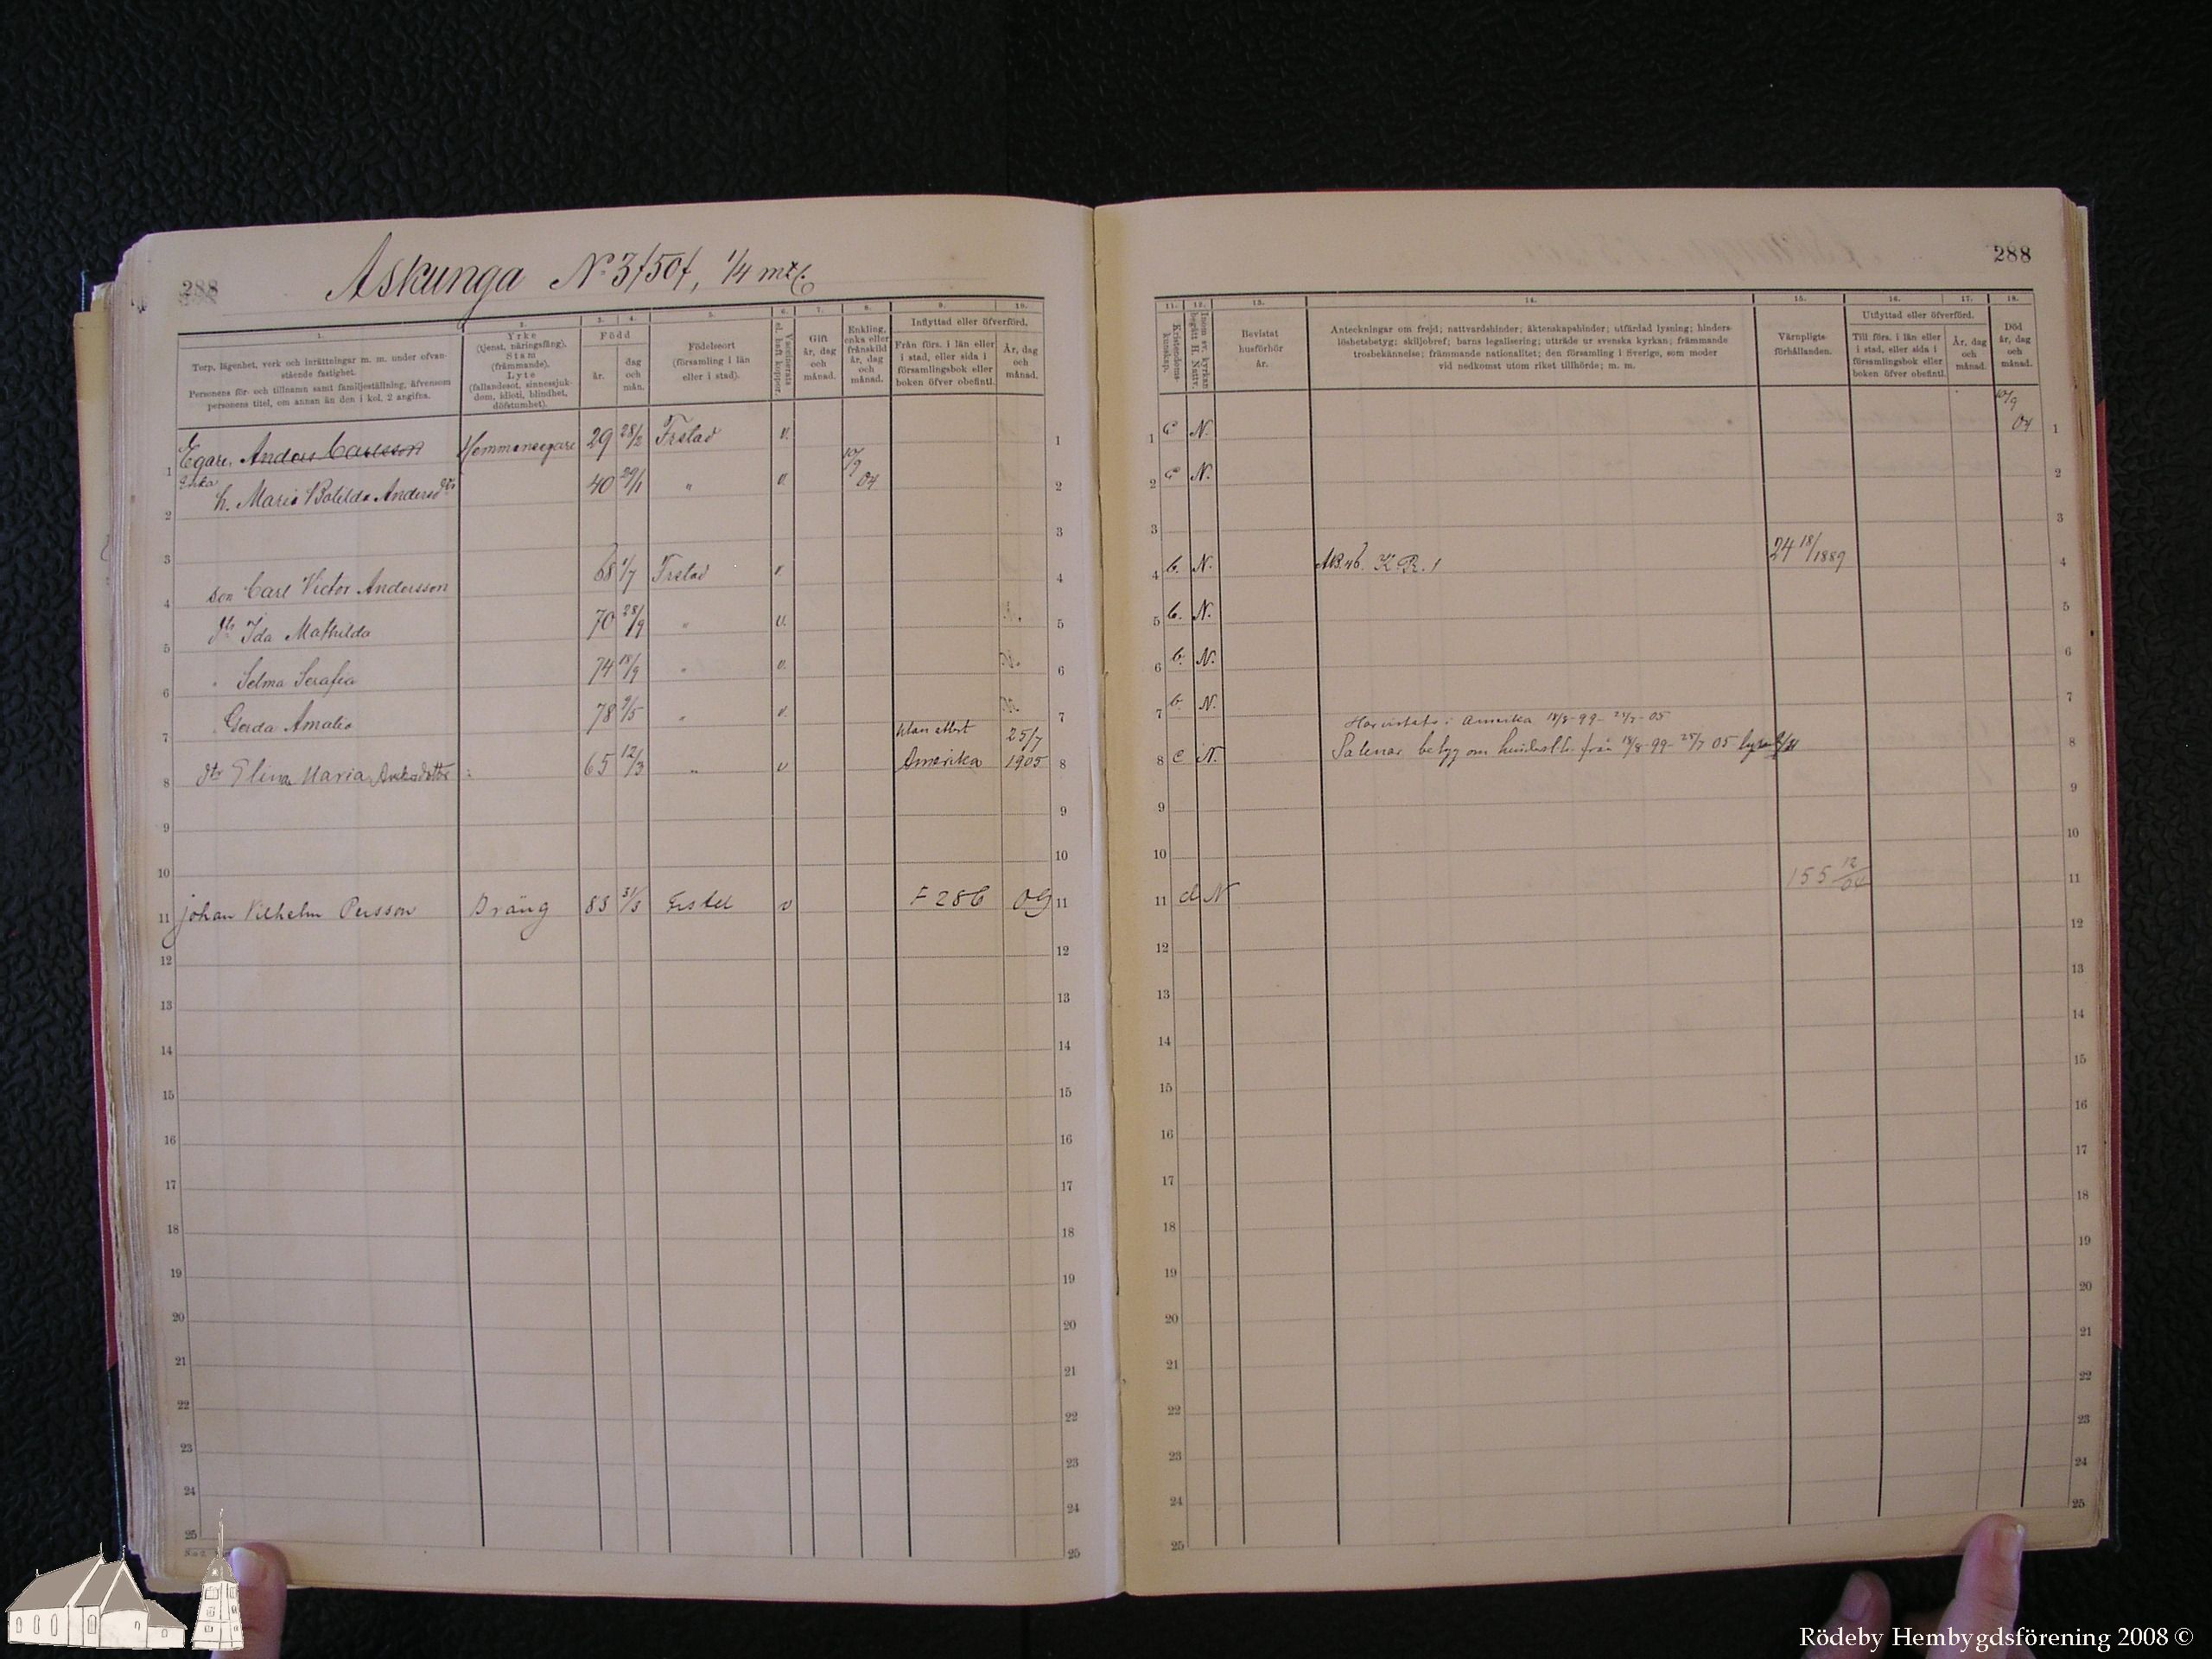 288
Askunga No 3/50/, 1/4 mtl
1. 2. 3. 4. 5. 6. 7. 8. 9. 10.
Torp, lägenhet, verk och inrättningar m. m. under ofvanstående fastighet.
Personens för- och tillnamn samt familjeställning, äfvensom personens titel, om annan än den i kol. 2 angifna.
Yrke
(tjenst, näringsfång).
Stam
(främmande).
Lyte
(fallandesot, sinnessjukdom, idioti, blindhet, döfstumhet).
Född
år.
dag och mån.
Födelseort
(församling i län eller i stad).
Vaccinerats el. haft koppor.
Gift
år, dag och månad.
Enkling, enka eller frånskild
år, dag och månad.
Inflyttad eller öfverförd.
Från förs. i län eller i stad, eller sida i församlingsbok eller boken öfver obefintl.
År, dag och månad.
1 Egare. Anders Carlsson Hemmansegare 29 28/2 Frstad v. 1
Enka
2 h. Maria Botilda Andersdtr 40 29/1 " v. 10/9 04 2
3 3
4 son Carl Victor Andersson 68 1/7 Frstad v. 4
5 dtr Ida Mathilda 70 28/9 " v. N. 5
6 " Selma Serafia 74 18/9 " v. N. 6
7 Gerda Amalia 78 9/5 " v. N. 7
utan attest 25/7
8 dtr Elina Maria Andersdotter 65 12/3 " v Amerika 1905 8
9 9
10 10
11 Johan Vilhelm Persson Dräng 83 31/3 Frstad v F 286 09 11
12 12
13 13
14 14
15 15
16 16
17 17
18 18
19 19
20 20
21 21
22 22
23 23
24 24
25 25
288
11. 12. 13. 14. 15. 16. 17. 18.
Kristendomskunskap.
Inom sv. kyrkan begått H. Nattv.
Bevistat husförhör
år.
Anteckningar om frejd; nattvardshinder; äktenskapshinder; utfärdad lysning; hinderslöshetsbetyg; skiljobref; barns legalisering; utträde ur svenska kyrkan; främmande trosbekännelse; främmande nationalitet; den församling i Sverige, som moder vid nedkomst utom riket tillhörde; m. m.
Värnpligtsförhållanden.
Utflyttad eller öfverförd.
Till förs. i län eller i stad, eller sida i församlingsbok eller boken öfver obefintl.
År, dag och månad.
Död
år, dag och månad.
1 c N. 10/9 04 1
2 c N. 2
3 3
4 b. N. K. R. 1 24 18/1889 4
5 b. N. 5
6 b. N. 6
7 b. N. 7
Har vistats i Amerika 18/8-99- 25/7-05
8 c N. betyg om från 18/8-99- 25/7 05 8
9 9
10 10
11 d N 155 12/04 11
12 12
13 13
14 14
15 15
16 16
17 17
18 18
19 19
20 20
21 21
22 22
23 23
24 24
25 25
Rödeby Hembygdsförening 2008 ©